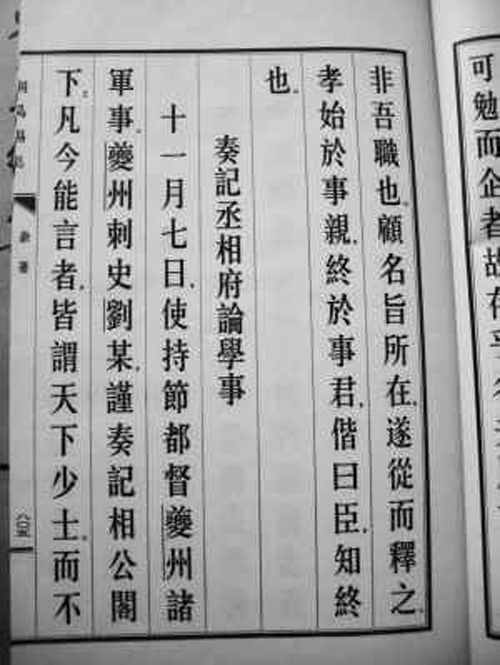 可勉而企者故存乎
非吾職也。顧名旨所在，遂從而釋之。
孝始於事親，終於事君，偕曰臣，知終
也。
奏記丞相府論學事
十一月七日，使持節都督夔州諸
軍事、夔州刺史劉某，謹奏記相公閣
下：凡今能言者，皆謂天下少士，而不
雜著